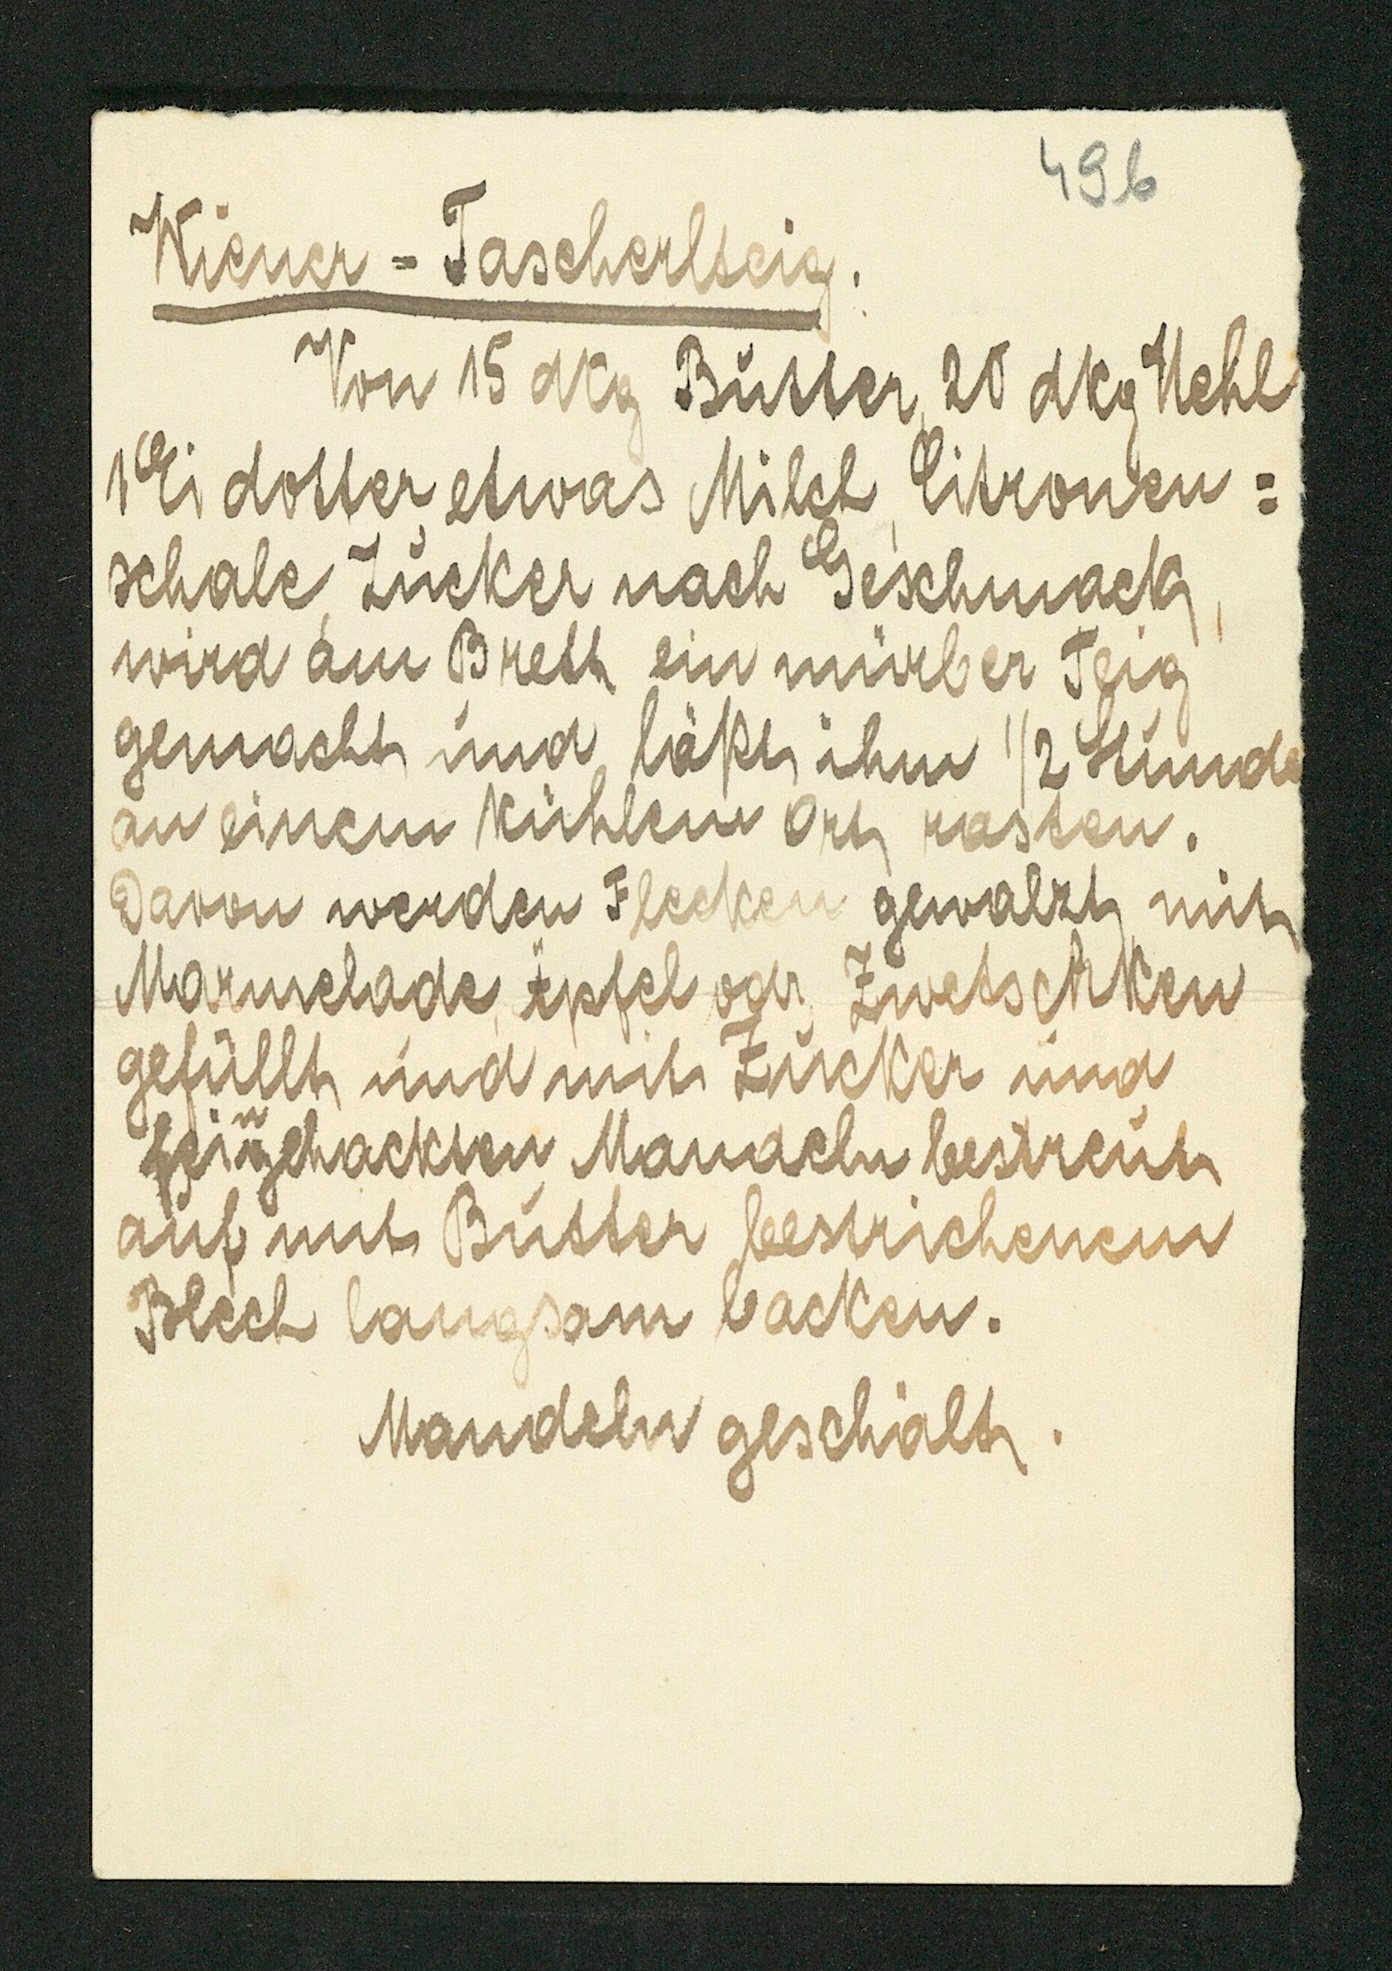 496
Wiener = Tascherlteig.
Von 15 dkg Butter, 20 dkg Mehl
1 Eidotter, etwas Milch, Citronen =
schale, Zucker nach Geschmack,
wird am Brett ein mürber Teig
gemacht und läßt ihm 1/2 Stunde
an einem kühlem Ort rasten.
Davon werden Flecken gewalzt, mit
Marmelade, Äpfel odr Zwetschken
gefüllt und mit Zucker und
feingehackten Mandeln bestreut
auf mit Butter bestrichenem
Blech langsam backen.
Mandeln geschält.